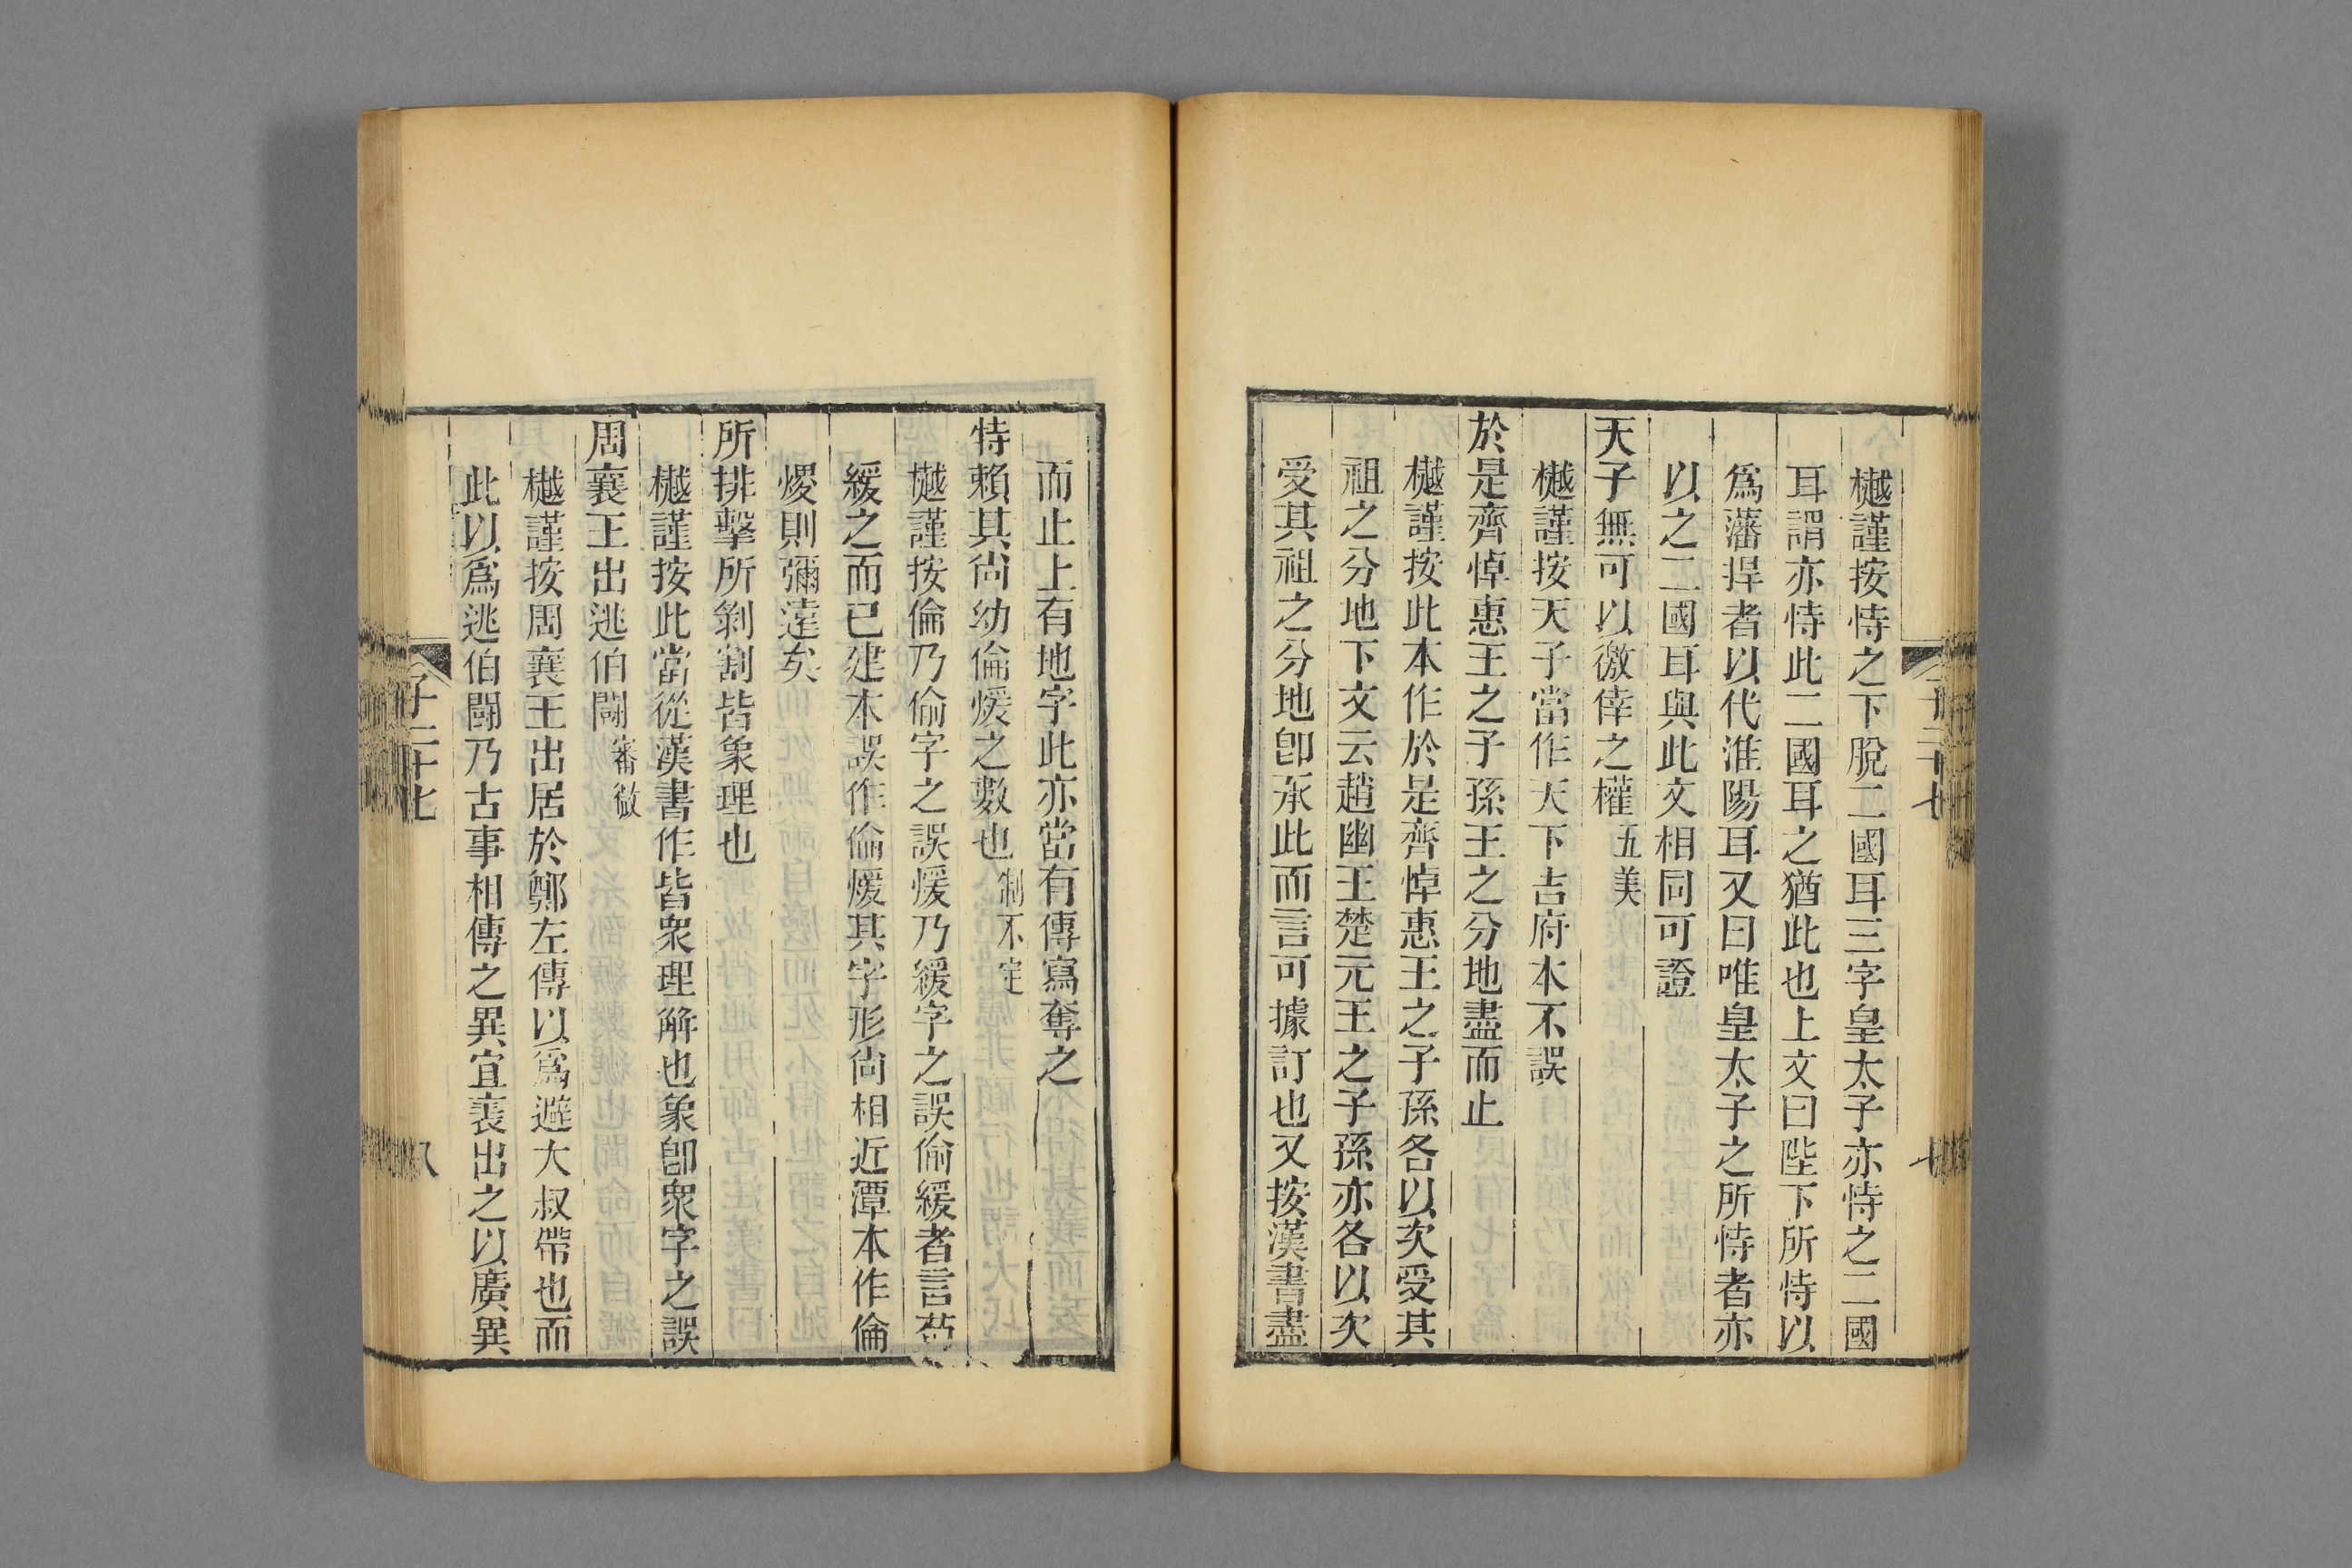 樾謹按恃之下脫二國耳三字皇太子亦恃之二國
耳謂亦恃此二國耳之猶此也上文曰陛下所恃以
爲藩捍者以代淮陽耳又曰唯皇太子之所恃者亦
以之二國耳與此文相同可證
天子無可以徼倖之權 五美
樾謹按天子當作天下吉府本不誤
於是齊悼惠王之子孫王之分地盡而止
樾謹按此本作於是齊悼惠王之子孫各以次受其
祖之分地下文云趙幽王楚元王之子孫亦各以次
受其祖之分地卽承此而言可據訂也又按漢書盡
而止上有地字此亦當有傳寫奪之
恃賴其尚幼倫煖之數也 制不定
樾謹按倫乃偷字之誤煖乃緩字之誤偷緩者言苟
緩之而已建本誤作倫煖其字形尚相近潭本作倫
煖則彌遠矣
所排擊所剝割皆象理也
樾謹按此當從漢書作皆衆理解也象卽衆字之誤
周襄王出逃伯鬭 審微
樾謹按周襄王出居於鄭左傳以爲避大叔帶也而
此以爲逃伯鬭乃古事相傳之異宜表出之以廣異
子二十七
八